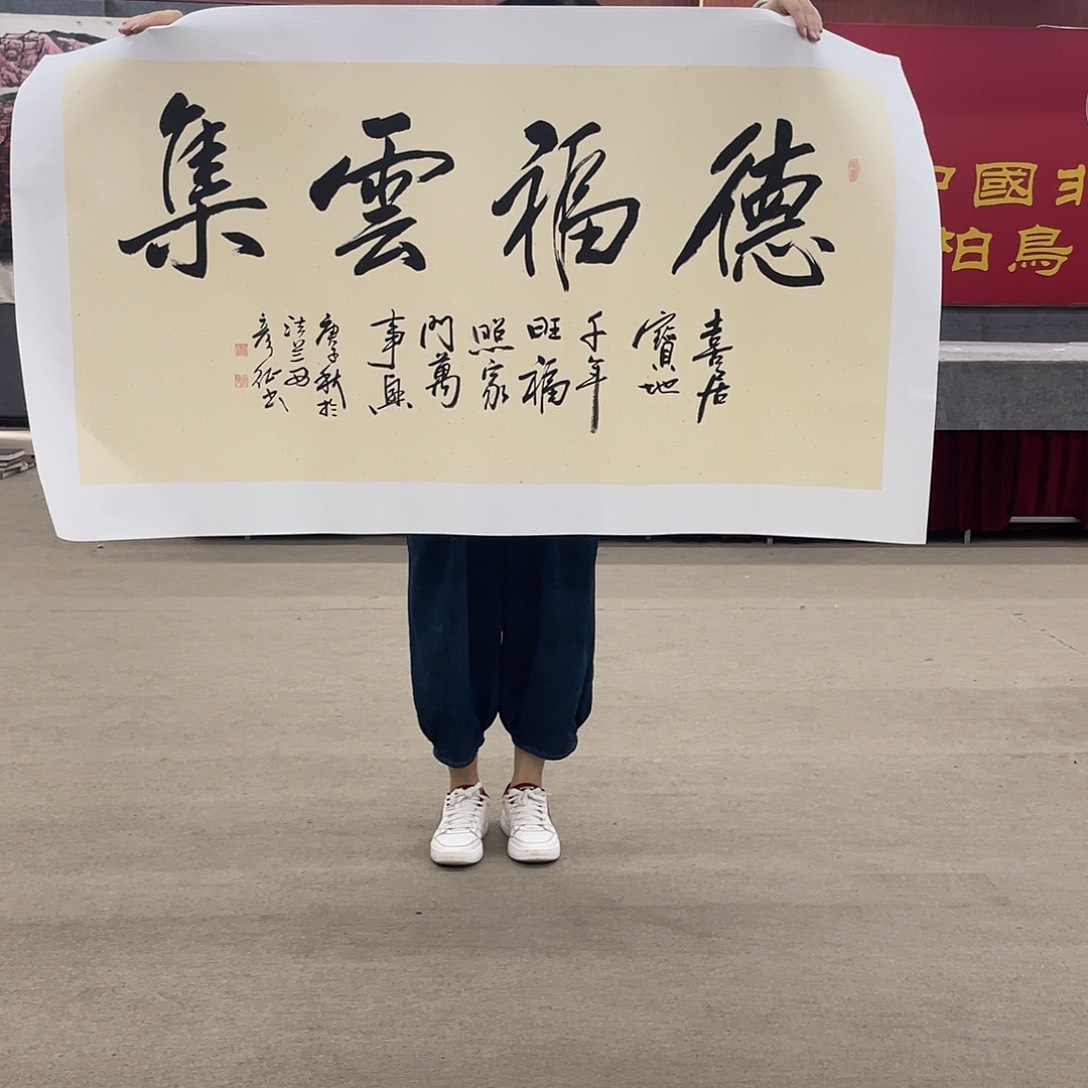 德福雲集
喜居
寶地
千年
旺福
照家
門萬
事興
庚子秋於
法兰西
彦征书
中國北
柏鳥